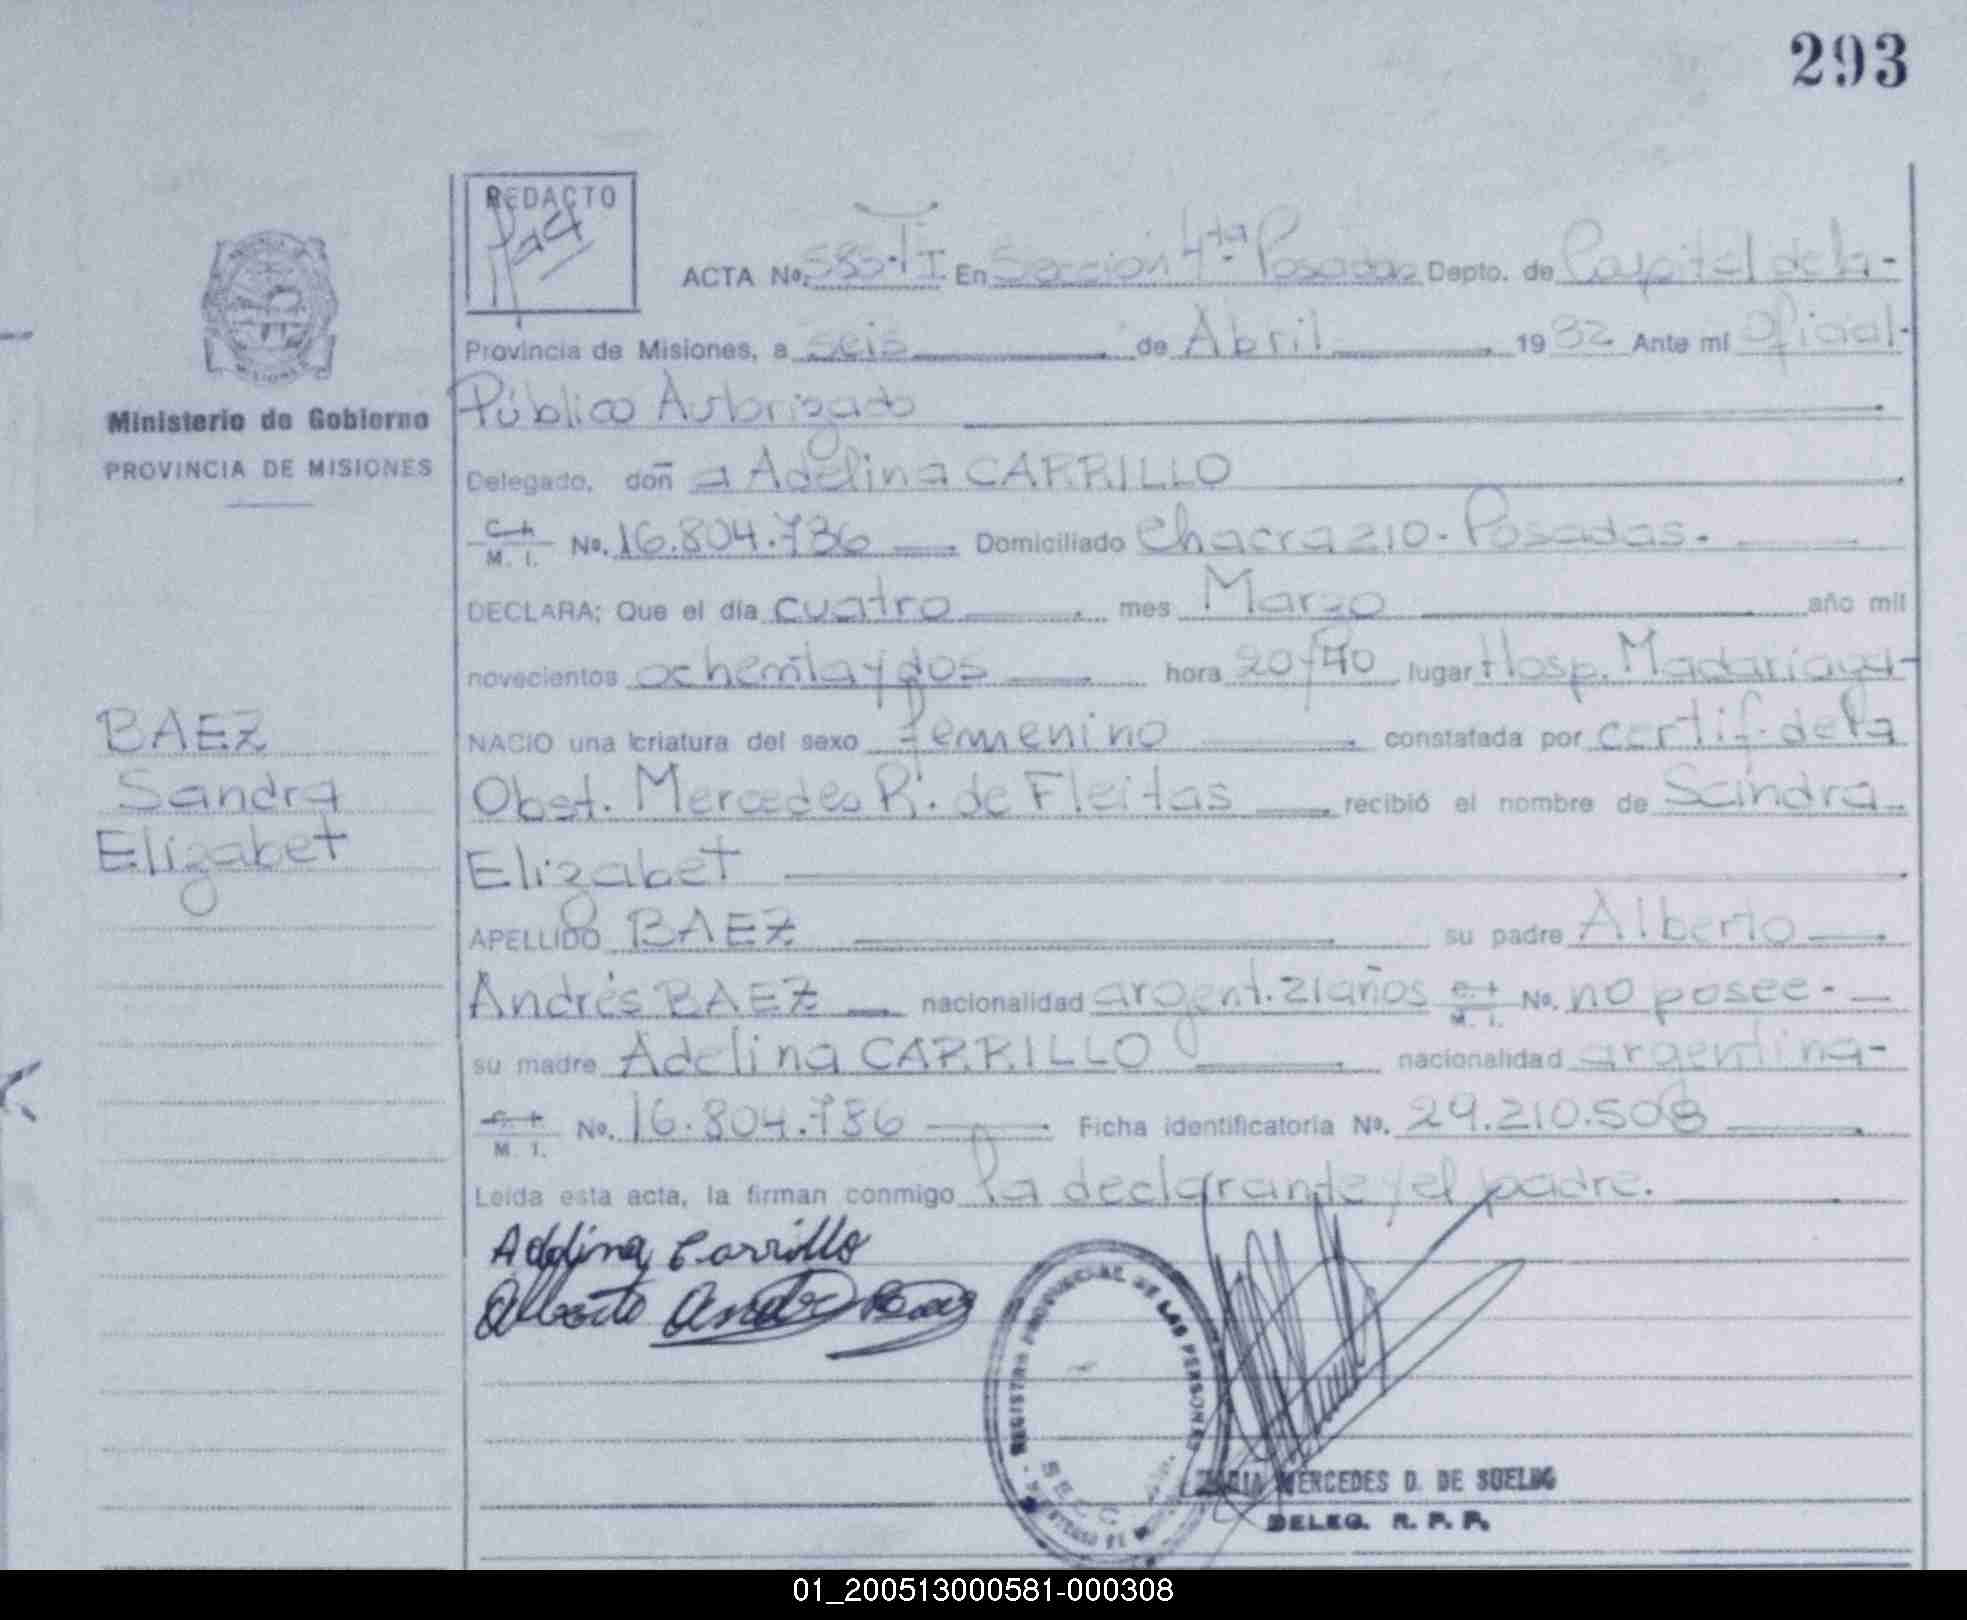 293
REDACTO
ACTA No. 585-TI En Sección 4ta Posadas Depto. de Capital de la-
Provincia de Misiones, a seis de Abril 1982 Ante mí Oficial-
Ministerio de Gobierno
PROVINCIA DE MISIONES
Público Autorizado
Delegado, doñ a Adelina CARRILLO
M. I. No. 16.804.736 Domiciliado Chacra 210-Posadas.
DECLARA; Que el día cuatro mes Marzo año mil
novecientos ochenta y dos hora 20/40 lugar Hosp. Madariaga-
NACIO una criatura del sexo femenino constatada por certif. de la
Obst. Mercedes R. de Fleitas recibió el nombre de Sandra
Elizabet
BAEZ
Sandra
Elizabet
APELLIDO BAEZ su padre Alberto
Andrés BAEZ nacionalidad argent. 21 años M. I. No. no posee-
su madre Adelina CARRILLO nacionalidad argentina-
M. I. No. 16.804.786 Ficha identificatoria No. 29.210.508
Leída esta acta, la firman conmigo la declarante y el padre.
Adelina Carrillo
Alberto Andres Baez
REGISTRO PROVINCIAL DE LAS PERSONAS
SECC.
MARIA MERCEDES D. DE SUELDO
DELEG. R. P. P.
01_200513000581-000308